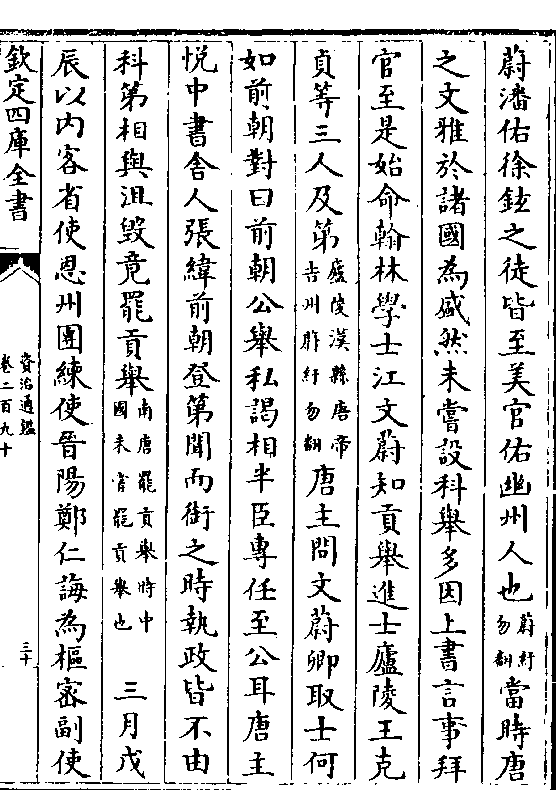 蔚潘佑徐鉉之徒皆至美官佑幽州人也蔚紆勿翻當時唐
之文雅於諸國為盛然未嘗設科舉多因上書言事拜
官至是始命翰林學士江文蔚知貢舉進士廬陵王克
貞等三人及第廬陵漢縣唐帝吉州貯紆勿翻唐主問文蔚卿取士何
如前朝對曰前朝公舉私謁相半臣專任至公耳唐主
悦中書舍人張緯前朝登第聞而銜之時執政皆不由
科第相與沮毁竟罷貢舉南唐罷貢舉時中國未嘗罷貢舉也三月戊
辰以内客省使恩州團練使晉陽鄭仁誨為樞密副使
欽定四庫全書
資治通鑑
卷二百九十
三十